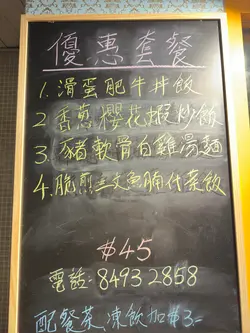 優惠套餐
1. 滑蛋肥牛丼飯
2 香蔥櫻花蝦炒飯
3. 豬軟骨白雞湯麵
4. 脆煎三文魚腩什菜飯
$45
電話：8493 2858
配餐茶 凍飲加$3-